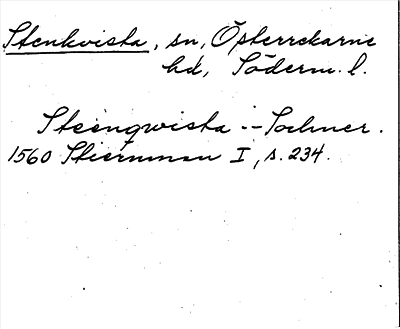 Stenkvista, sn, Österrekarne
hd, Söderm. l.
Steenqwista -- Sochner.
1560 Stiernman I, s. 234.